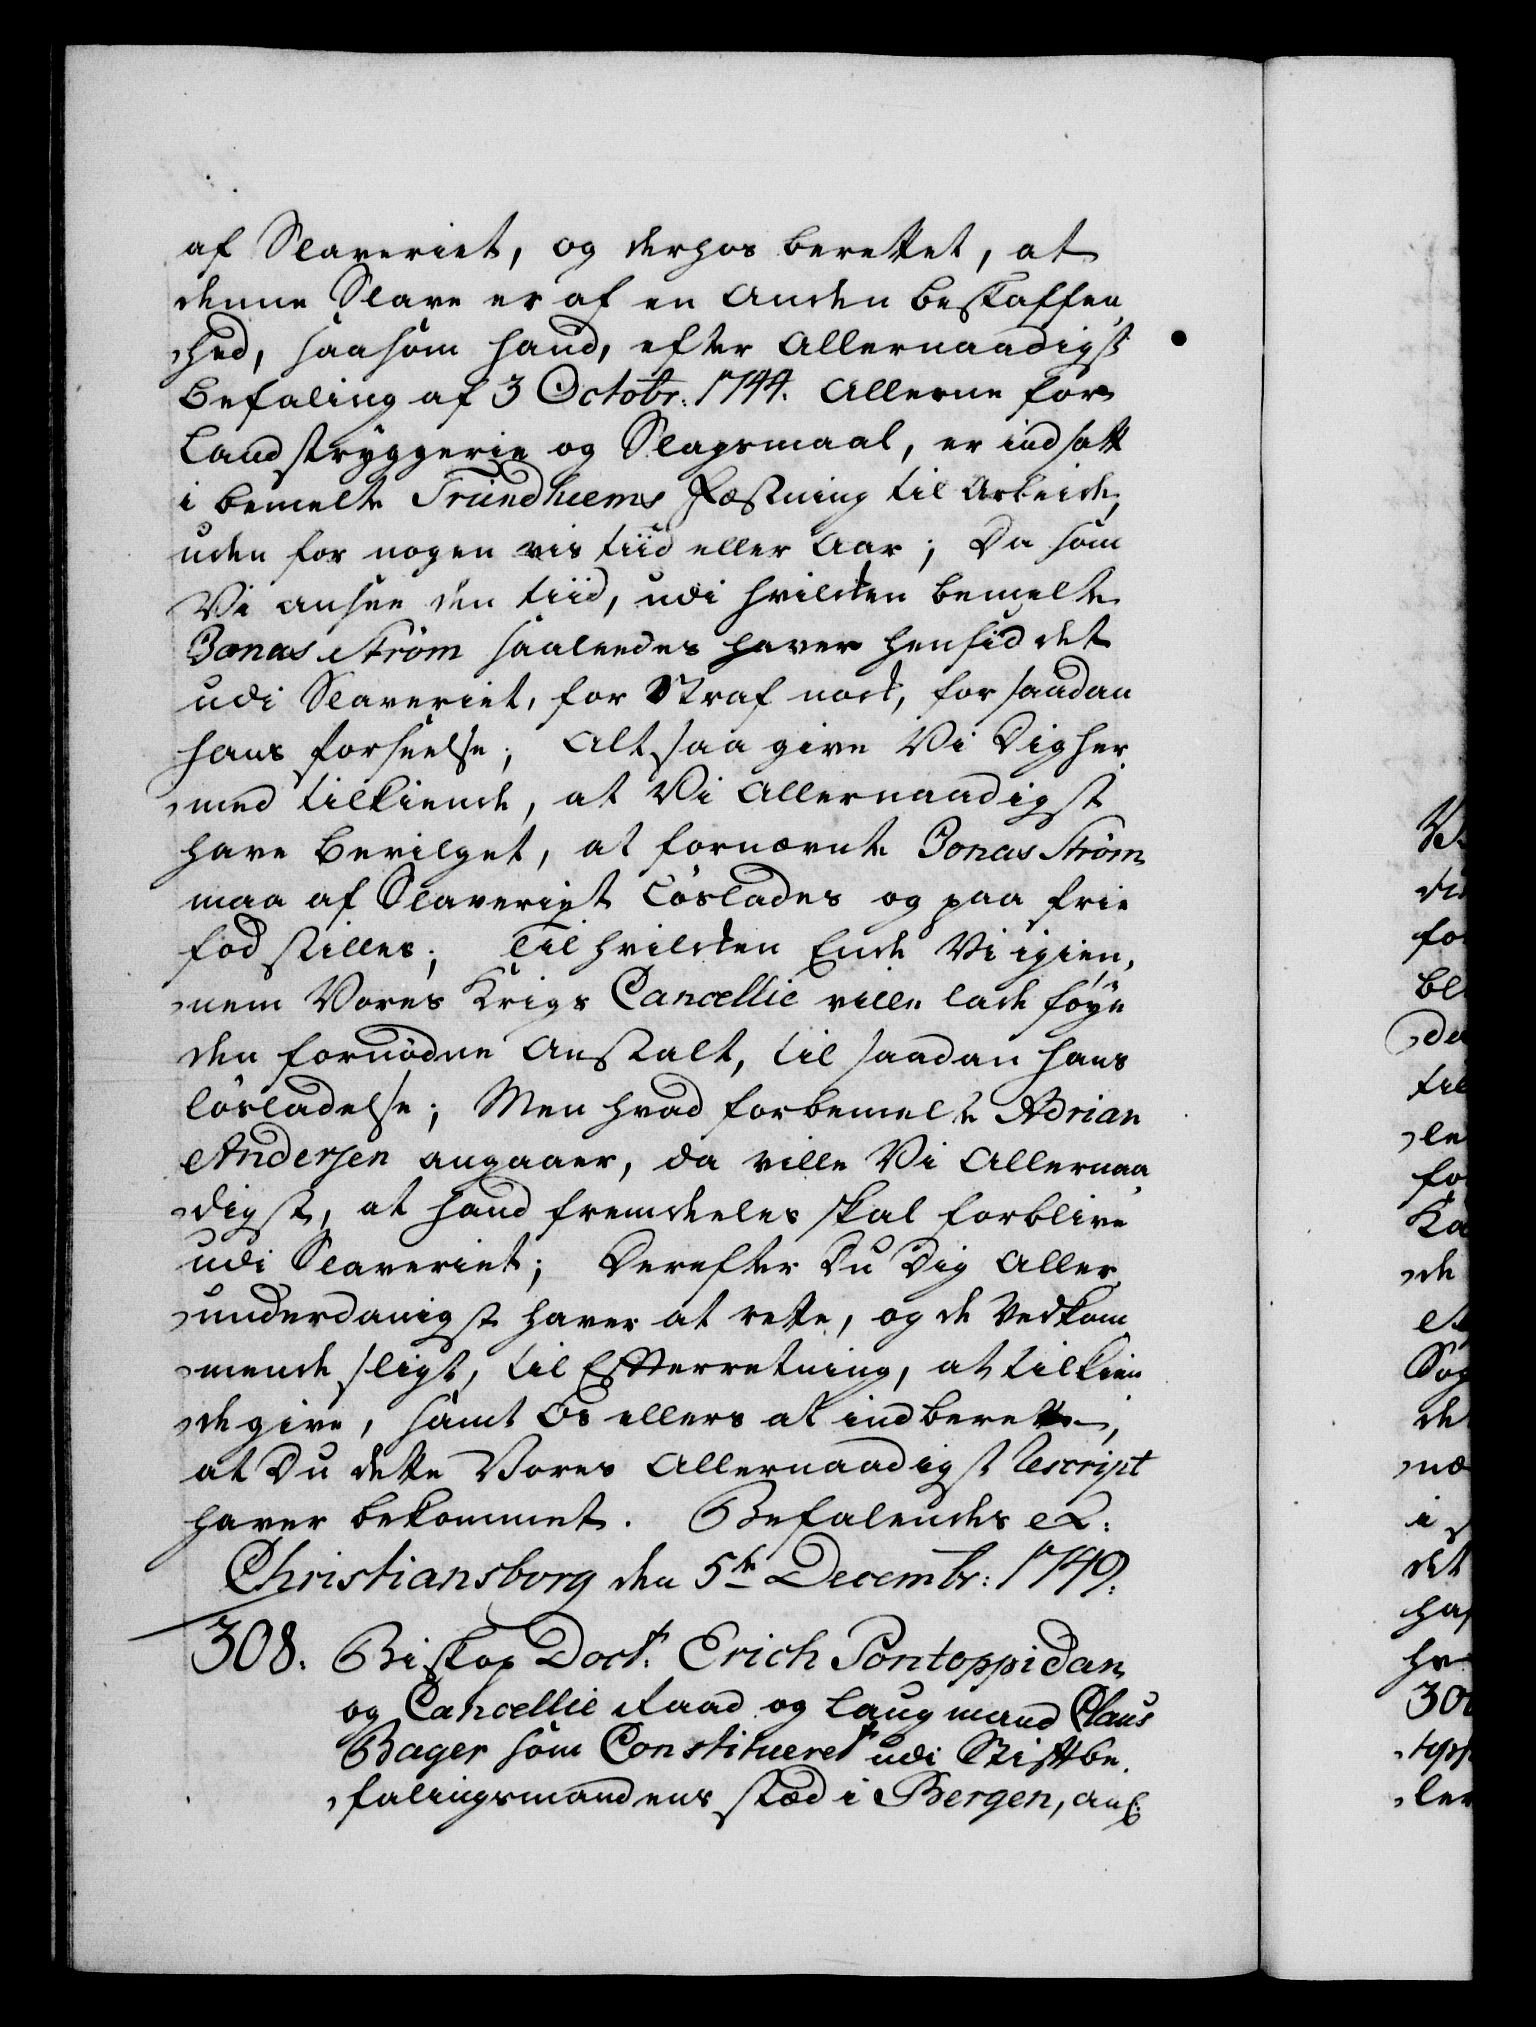 af Slaveriet, og derhos berettet, at
denne Slave er af en Anden beskaffen,
hed, saasom hand, efter Allernaadigst
Befaling af 3 Octobr: 1744. Allerne for
Landstryggerie og Slagsmaal, er indsatt
i bemelte Trundhiems Fæstning til Arbeide,
uden for nogen vis tiid eller Aar; Da som
Vi ansee den tiid, udi hvilcken bemelte
Jonas Strøm saaleedes haver hensiddet
udi Slaveriet, for Straf nock, for saadan
hans forseelse; Altsaa give Vi Dig her,
med tilkiende, at Vi Allernaadigst
have Bevilget, at fornævnte Jonas Strøm
maa af Slaveriet Løslades og paa frie
fod stilles; Til hvilcken Ende Vi igien,
nem Vores Krigs Cancellie ville lade føye
den fornødne Anstalt, til saadan hans
løsladelse; Men hvad forbemelte Adrian
Andersen angaaer, da ville Vi Allernaa,
digst, at hand fremdeeles skal forblive
udi Slaveriet; Derefter Du Dig Aller,
underdanigst haver at rette, og de Vedkom,
mende sligt, til Efterretning, at tilkien
de give, samt Os ellers at indberette,
at Du dette Vores Allernaadigst Rescript
haver bekommet. Befalendes &:
Christiansborg den 5te Decembr: 1749.
308. Biskop Doct: Erich Pontoppidan
og Cancellie Raad og Laugmand Claus
Bager som Constitueret udi Stiftbe,
falingsmandens stæd i Bergen, anl:
V
fo
Bl
de
til
le
fo
Ka
de
A
Sog
de
næ
i
det
haf
hv
30
topp
ler